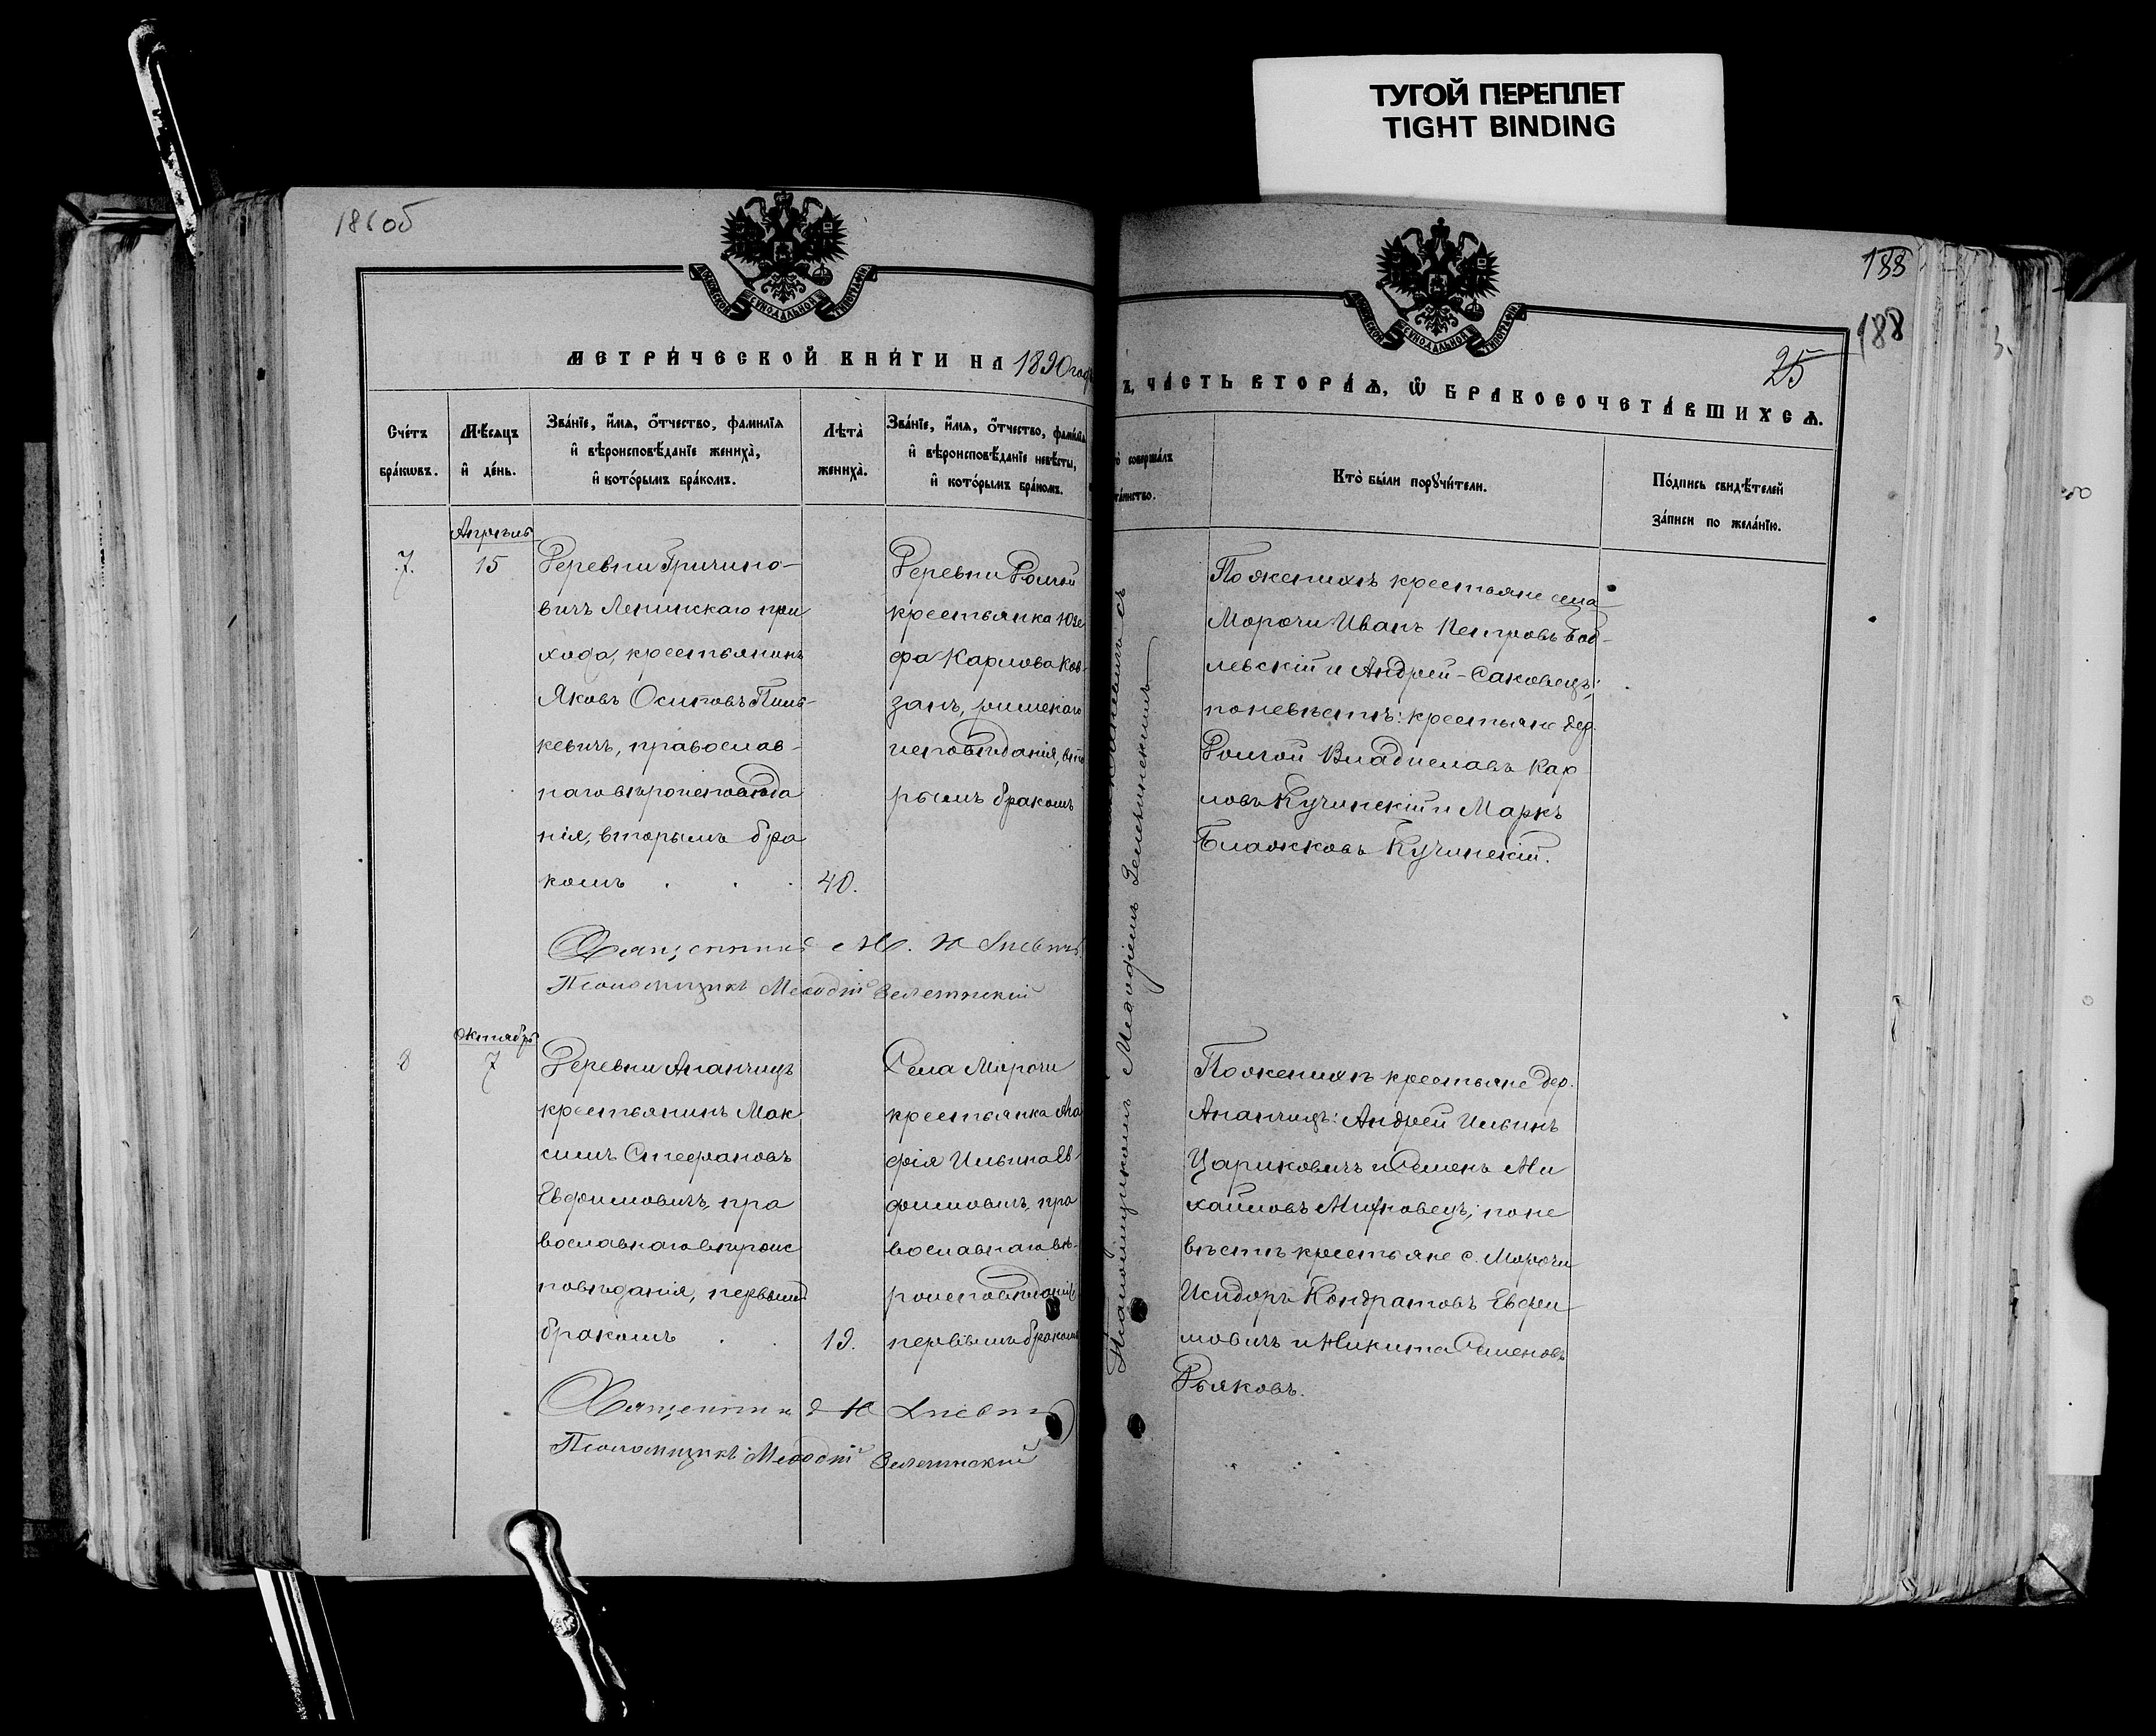 ТУГОЙ ПЕРЕПЛЕТ
TIGHT BINDING
188
188
25
МЕТРИ́ЧЕСКОЙ КНИ́ГИ НА 1890 год
Ъ, ЧА́СТЬ ВТОРА́Ѧ, Ѽ БРАКОСОЧЕТА́ВШИХСѦ.
Сче́тъ бра́кωвъ.
Мѣ́сяцъ и҆ де́нь.
Зва́нїе, и҆́мя, ѻ҆́тчество, фамилїя
и҆ вѣроисповѣ́данїе жениха̀,
и҆ кото́рымъ бра́комъ.
Лѣта̀ жениха̀.
Зва́нїе, и҆́мя, ѻ҆́тчество, фамилїя
и҆ вѣроисповѣ́данїе невѣ́сты,
и҆ кото́рымъ бра́комъ.
совершалъ
Кто̀ бы́ли порꙋчи́тели.
По́дпись свидѣ́телей
за́писи по жела́нїю.
Апрѣль
7. 15
Деревни Гричино-
вичъ Ленинскаго при
хода, крестьянинъ
Яковъ Осиповъ Пинь-
кевичъ, православ-
наго вѣроисповѣда
нія, вторымъ бра
комъ 40.
Деревни Долгой
крестьянка Юзе
фа Карлова Ков-
занъ, римскаго
исповѣданія, вто
рымъ бракомъ
По женихѣ крестьяне села
Морочи Иванъ Петровъ
левскій и Андрей Саковецъ;
по невѣстѣ: крестьяне дер.
Долгой Владиславъ Кар-
ловъ Кучинскій и Маркъ
Блажковъ Кучинскій.
Священникъ
Псаломщикъ Меѳодій Зеленинскій
Октябрь
8 7
Деревни Ананчицъ
крестьянинъ Мак
симъ Стефановъ
Евфимовичъ, пра
вославнаго вѣроис
повѣданія, первымъ
бракомъ 19.
Села Морочи
крестьянка Ага
фія Ильина Ев
фимовичъ, пра
вославнаго вѣ-
роисповѣданія
первымъ бракомъ
По женихѣ крестьяне дер.
Ананчицъ: Андрей Ильинъ
Цариковичъ и Семенъ Ми
хайловъ по не
вѣстѣ крестьяне с. Морочи
Исидоръ Кондратовъ Евфи
мовичъ и Никита Семеновъ
Дьяковъ.
Священникъ
Псаломщикъ Меѳодій Зеленинскій
Псаломщикомъ Меѳодіемъ Зеленинскимъ